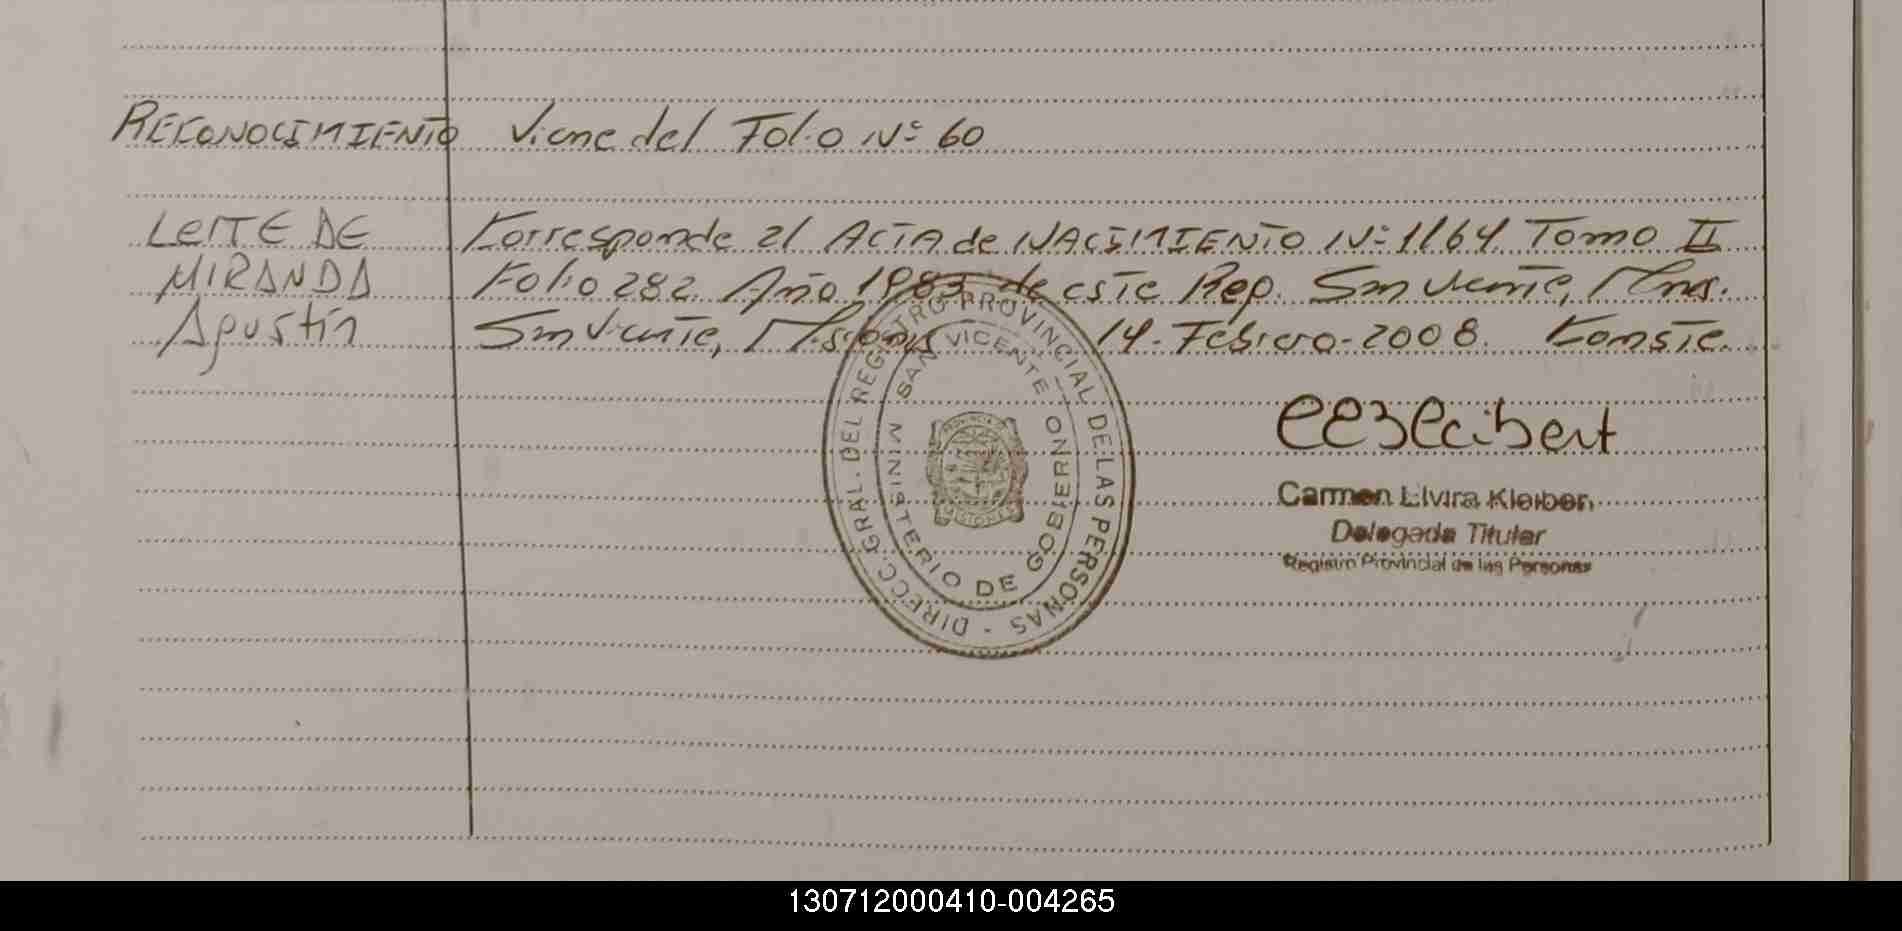 RECONOCIMIENTO Viene del Folio Nº 60
LEITE DE Corresponde al ACTA de NACIMIENTO Nº 1164. Tomo II
MIRANDA Folio 282. Año 1983 de este Rep. San Vicente, Mnes.
Agustín San Vicente, Misiones 14. Febrero-2008. Conste.
DIRECC. GRAL. DEL REGISTRO PROVINCIAL DE LAS PERSONAS -
MINISTERIO DE GOBIERNO
SAN VICENTE
MISIONES
Carmen Elvira Kleiber
Delegada Titular
Registro Provincial de las Personas
130712000410-004265